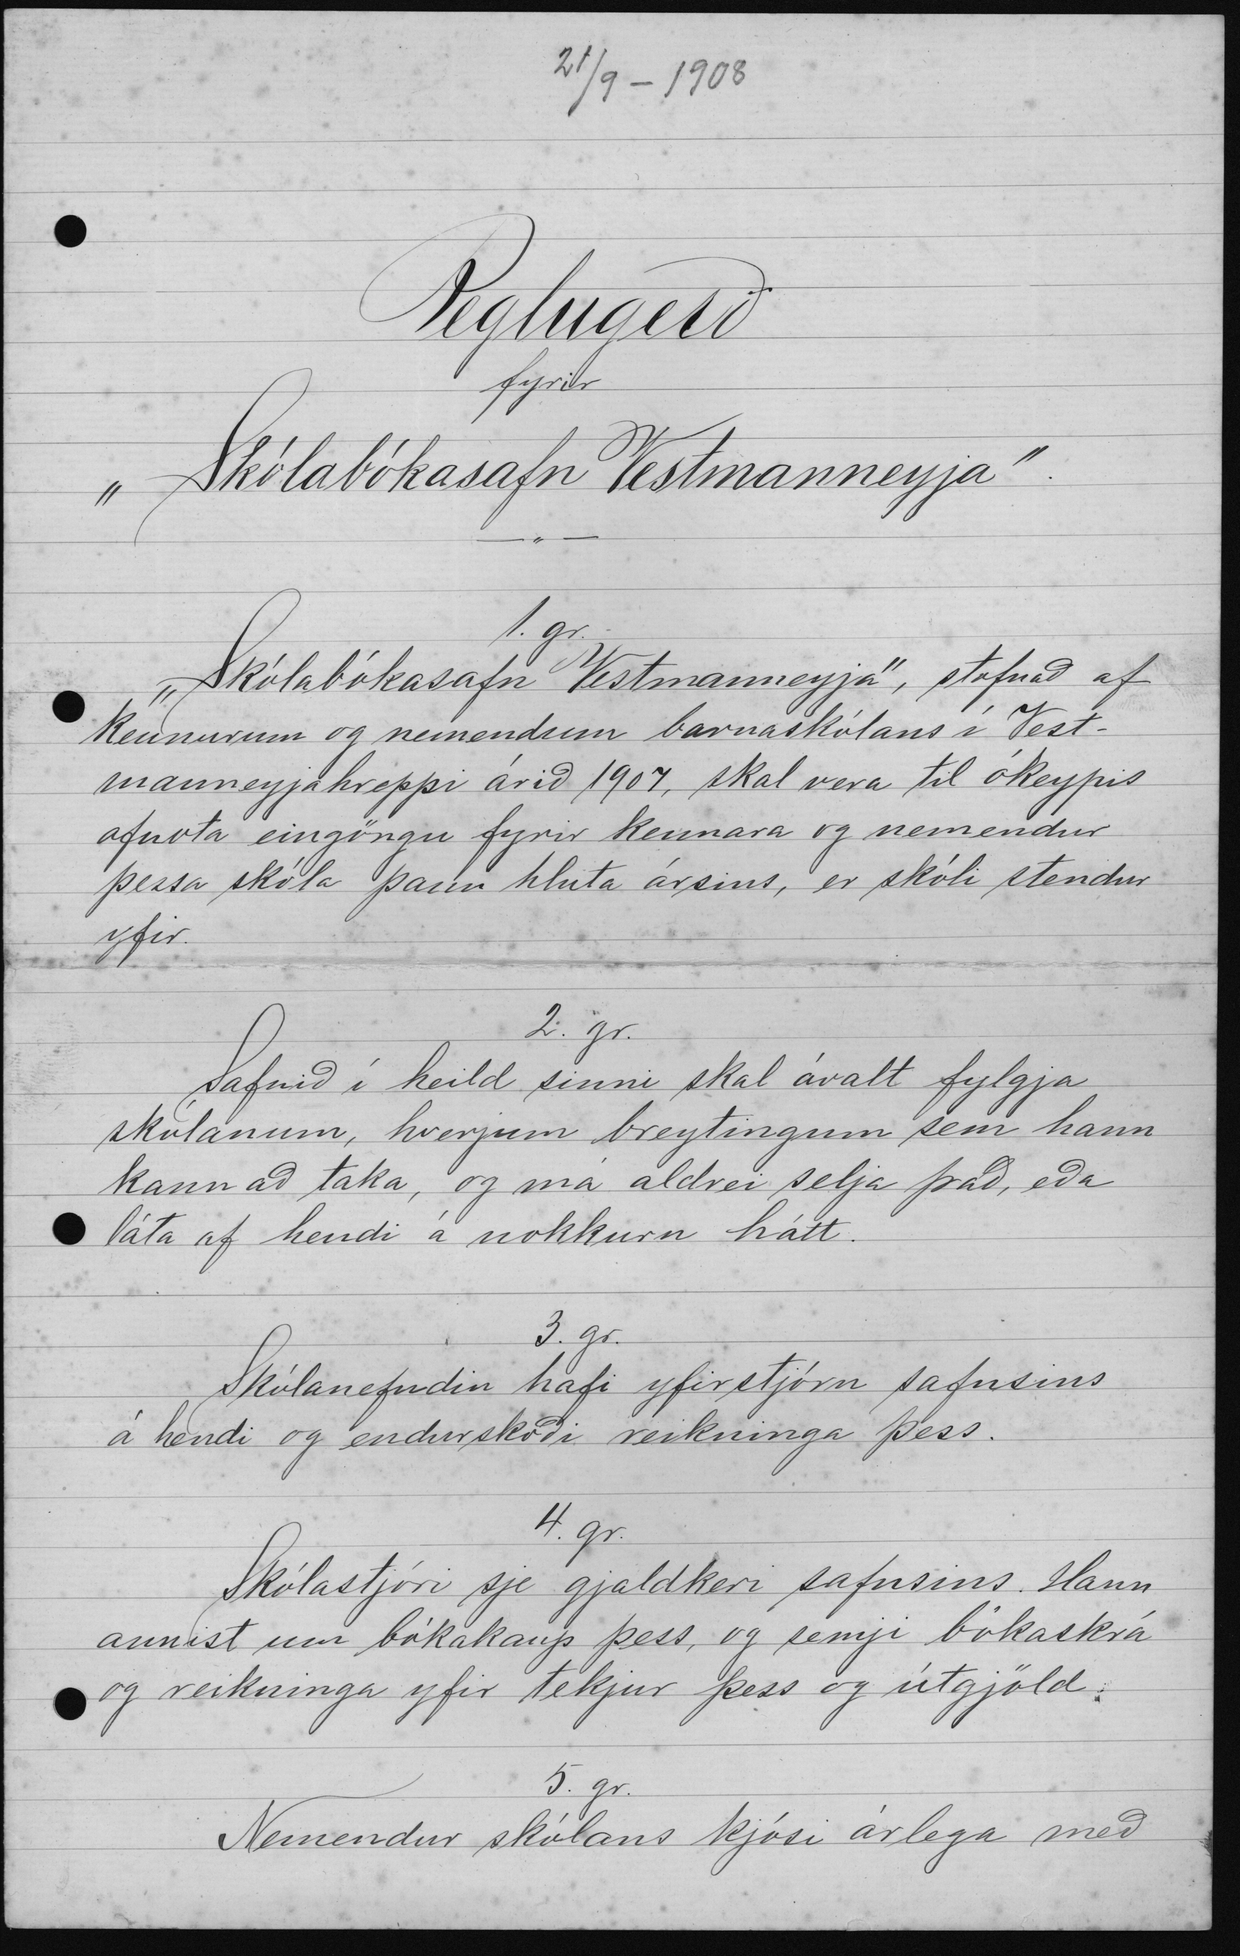 21/9 – 1908
Reglugerð
fyrir
„Skólabókasafn Vestmanneyja".
— " —
1. gr.
„Skólabókasafn Vestmanneyja", stofnað af
kennurum og nemendum barnaskólans í Vest-
manneyjahreppi árið 1907, skal vera til ókeypis
afnota eingöngu fyrir kennara og nemendur
þessa skóla þann hluta ársins, er skóli stendur
yfir.
2. gr.
Safnið í heild sinni skal ávalt fylgja
skólanum, hverjum breytingum sem hann
kann að taka, og má aldrei selja það, eða
láta af hendi á nokkurn hátt.
3. gr.
Skólanefndin hafi yfirstjórn safnsins
á hendi og endurskoði reikninga þess.
4. gr.
Skólastjóri sje gjaldkeri safnsins. Hann
annist um bókakaup þess, og semji bókaskrá
og reikninga yfir tekjur þess og útgjöld.
5. gr.
Nemendur skólans kjósi árlega með